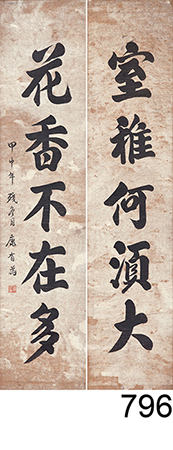 室雅何須大
花香不在多
甲申年 康有為
796